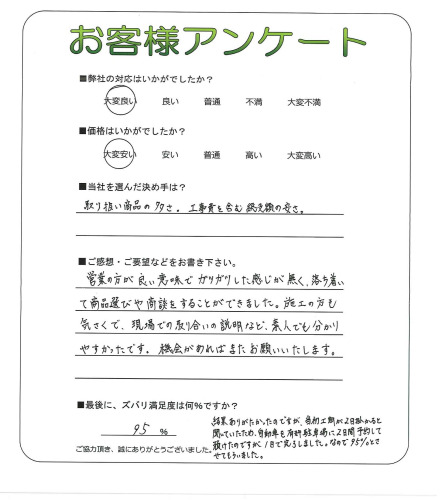 お客様アンケート
■弊社の対応はいかがでしたか?
大変良い 良い 普通 不満 大変不満
■価格はいかがでしたか?
大変安い 安い 普通 高い 大変高い
■当社を選んだ決め手は?
取り扱い商品の多さ。工事費を含む総支額の安さ。
■ご感想・ご要望などをお書き下さい。
営業の方が良い意味でガリガリした感じが無く、落ち着い
て商品選びや商談をすることができました。施工の方も
気さくで、現場での取り合いの説明など、素人でも分かり
やすかったです。機会があればまたお願いいたします。
■最後に、ズバリ満足度は何%ですか?
95 %
結果ありがたかったのですが、当初工期が2日掛かると
聞いていたため、自動車を有料駐車場に2日間予約して
預けたのですが1日で完了しました。なので95%とさ
せてもらいました。
ご協力頂き、誠にありがとうございました。